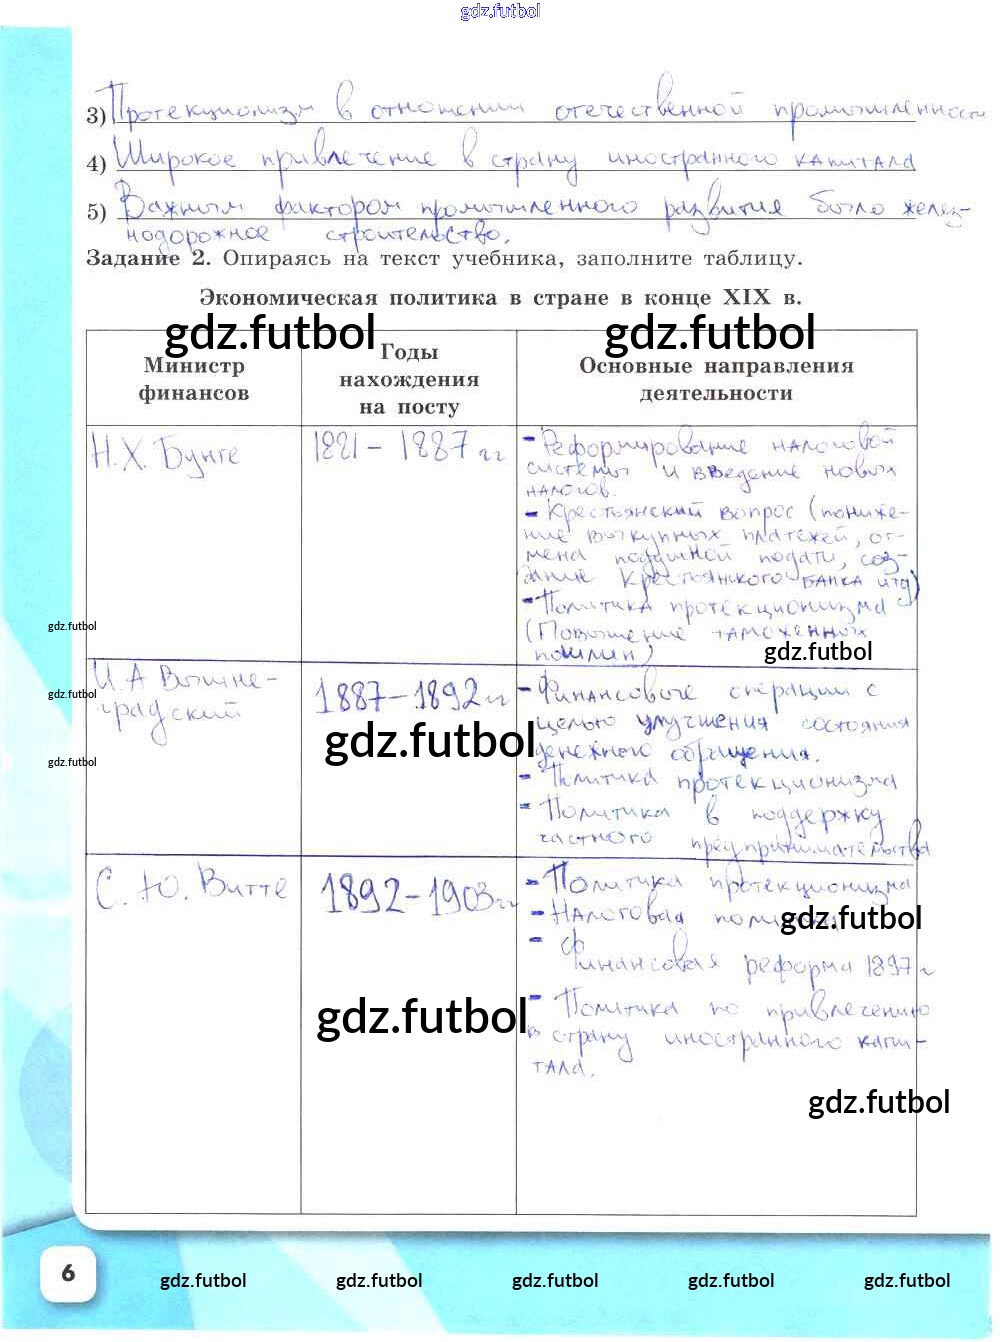 gdz.futbol
3) Протекционизм в отношении отечественной промышленности
4) Широкое привлечение в страну иностранного капитала
5) Важным фактором промышленного развития было желез-
нодорожное строительство.
Задание 2. Опираясь на текст учебника, заполните таблицу.
Экономическая политика в стране в конце XIX в.
gdz.futbol gdz.futbol
Министр
финансов
Годы
нахождения
на посту
Основные направления
деятельности
Н.Х. Бунге
1881 – 1887 гг
- Реформирование налоговой
системы и введение новых
налогов.
- Крестьянский вопрос (пониже-
ние выкупных платежей, от-
мена подушной подати, соз-
дание Крестьянского банка итд)
- Политика протекционизма
(Повышение таможенных
пошлин)
gdz.futbol
gdz.futbol
И.А Вышне-
градский
1887–1892 гг
- Финансовые операции с
целью улучшения состояния
денежного обращения.
- Политика протекционизма
- Политика в поддержку
частного предпринимательства
gdz.futbol
gdz.futbol
gdz.futbol
С. Ю. Витте
1892–1903 гг
- Политика протекционизма
- Налоговая политика
- Финансовая реформа 1897 г
- Политика по привлечению
в страну иностранного капи-
тала.
gdz.futbol
gdz.futbol
gdz.futbol
6
gdz.futbol gdz.futbol gdz.futbol gdz.futbol gdz.futbol